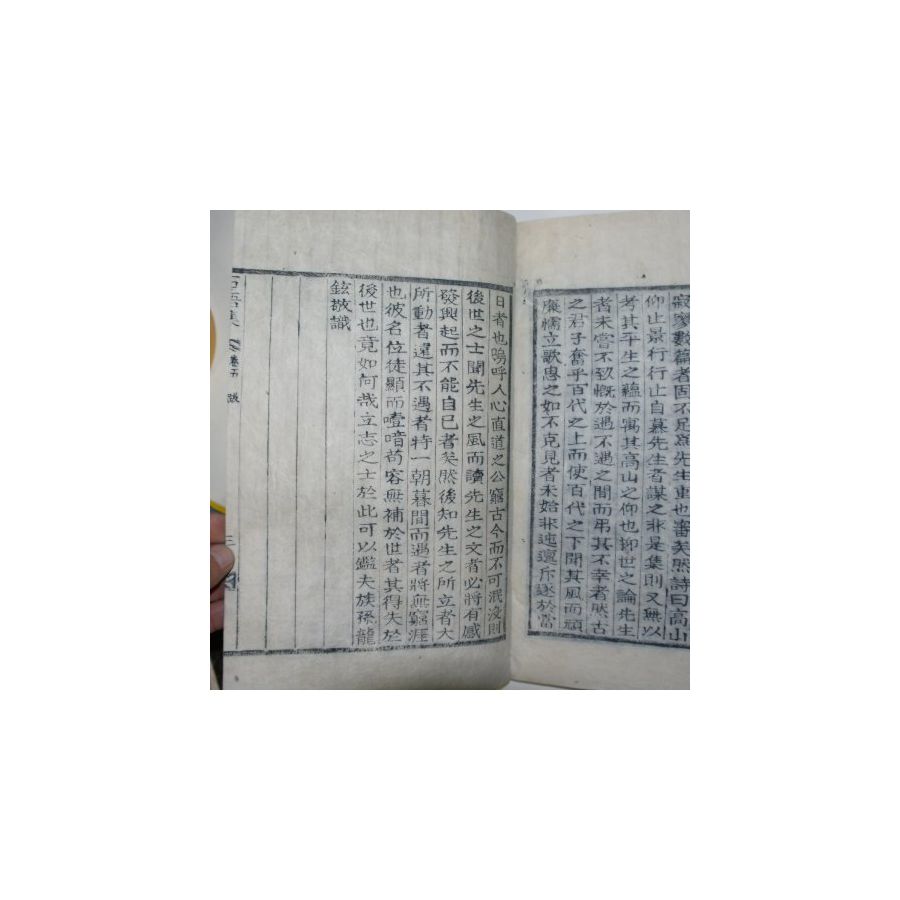 寂寥數篇者固不足爲先生重也審矣然詩曰高山
仰止景行行止自慕先生者謀之非是集則又無以
考其平生之蘊而寓其高山之仰也抑世之論先生
者未嘗不致慨於遇不遇之間而弔其不幸者然古
之君子奮乎百代之上而使百代之下聞其風而頑
廉懦立歌思之如不克見者未始非迍邅斥逐於當
日者也嗚呼人心直道之公窮古今而不可泯沒則
後世之士聞先生之風而讀先生之文者必將有感
發興起而不能自已者矣然後知先生之所立者大
所動者遠其不遇者特一朝暮間而遇者將無窮涯
也彼名位徒顯而噎喑苟容無補於世者其得失於
後世也竟如何哉立志之士於此可以鑑夫族孫龍
鉉敬識
集 卷五 跋 三